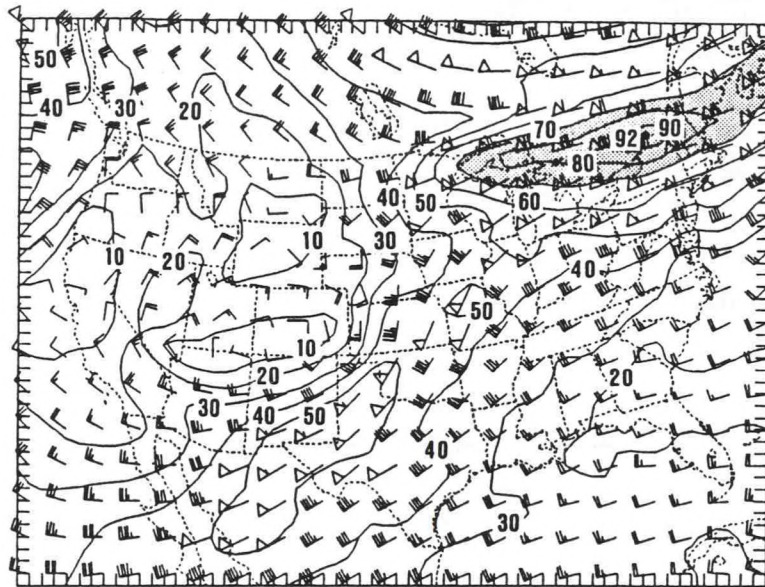 50
40 30 20
70 92 90
80
40
50 60
10 30
10 20
40
50
10
20
20
30 40 50
40
30